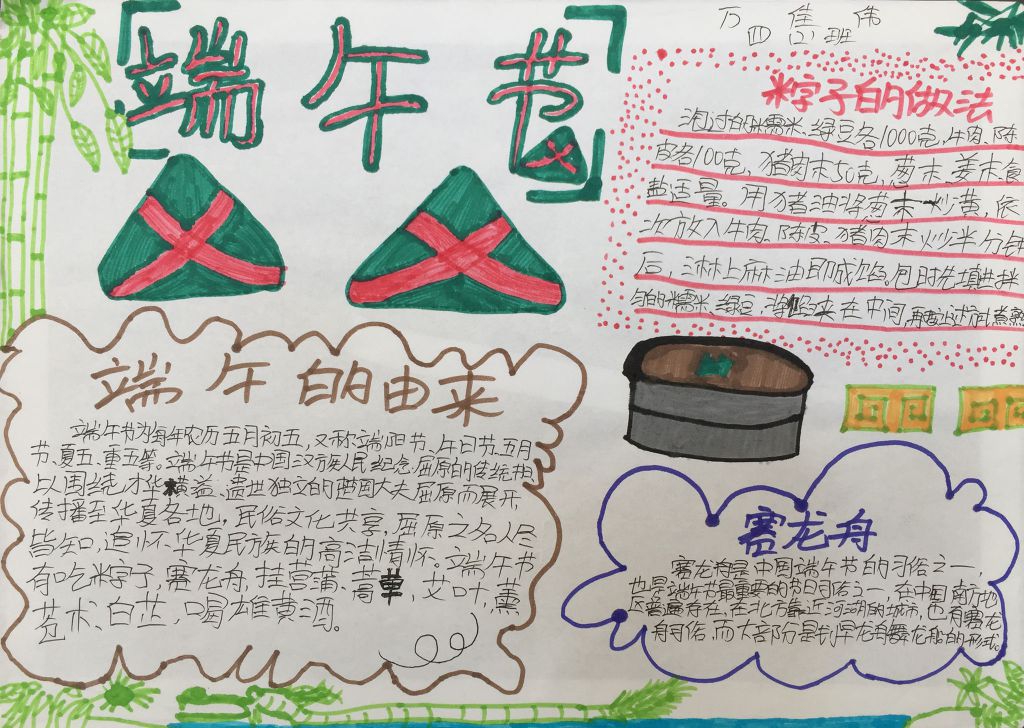 端午节
万佳伟
四(2)班
粽子的做法
泡过的糯米、绿豆各1000克,牛肉、陈
皮各100克,猪肉末50克,葱末、姜末食
盐适量。用猪油将葱末炒黄,依
次放入牛肉、陈皮、猪肉末炒半分钟
后,淋上麻油即成馅。包时先填进拌
匀的糯米、绿豆,将馅夹在中间,再
端午的由来
端午节为每年农历五月初五,又称端阳节、午日节、五月
节、夏五、重五等。端午节是中国汉族人民纪念屈原的传统节
以围绕才华横溢、遗世独立的楚国大夫屈原而展开,
传播至华夏各地,民俗文化共享,屈原之名人尽
皆知,追怀华夏民族的高洁情怀。端午节
有吃粽子,赛龙舟,挂菖蒲、蒿草,艾叶,薰
苍术、白芷,喝雄黄酒。
赛龙舟
赛龙舟是中国端午节的习俗之一,
也是端午节最重要的节日习俗之一,在中国南方地
区普遍存在,在北方靠近河湖的城市也有赛龙
舟习俗,而大部分是划旱龙舟舞龙船的形式。